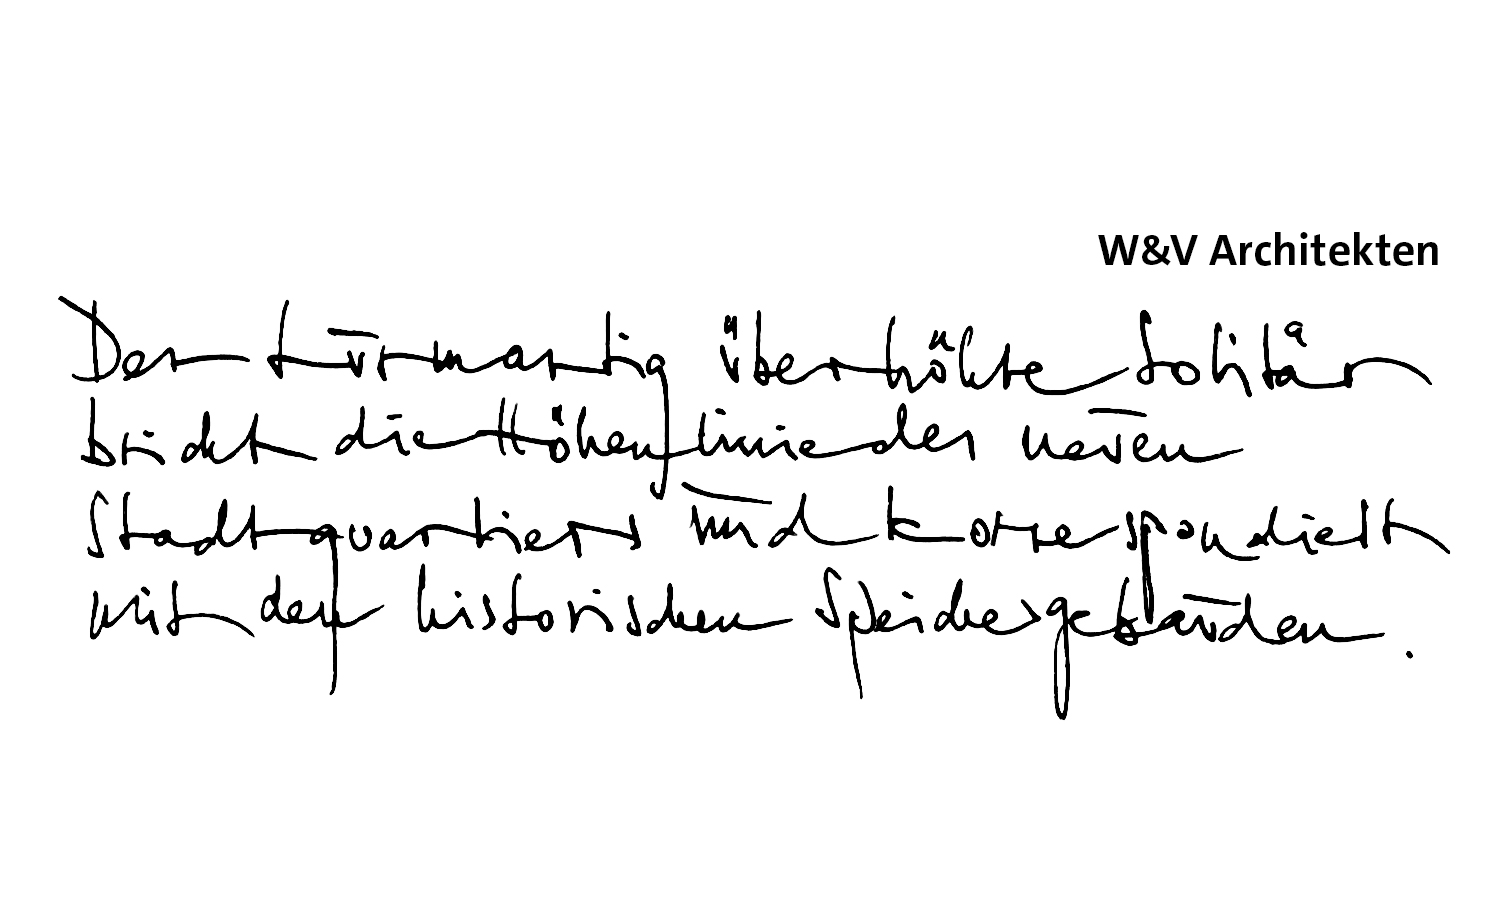 W&V Architekten
Der turmartig überhöhte Solitär
bricht die Höhenlinie des neuen
Stadtquartiers und korrespondiert
mit den historischen Speichergebäuden.